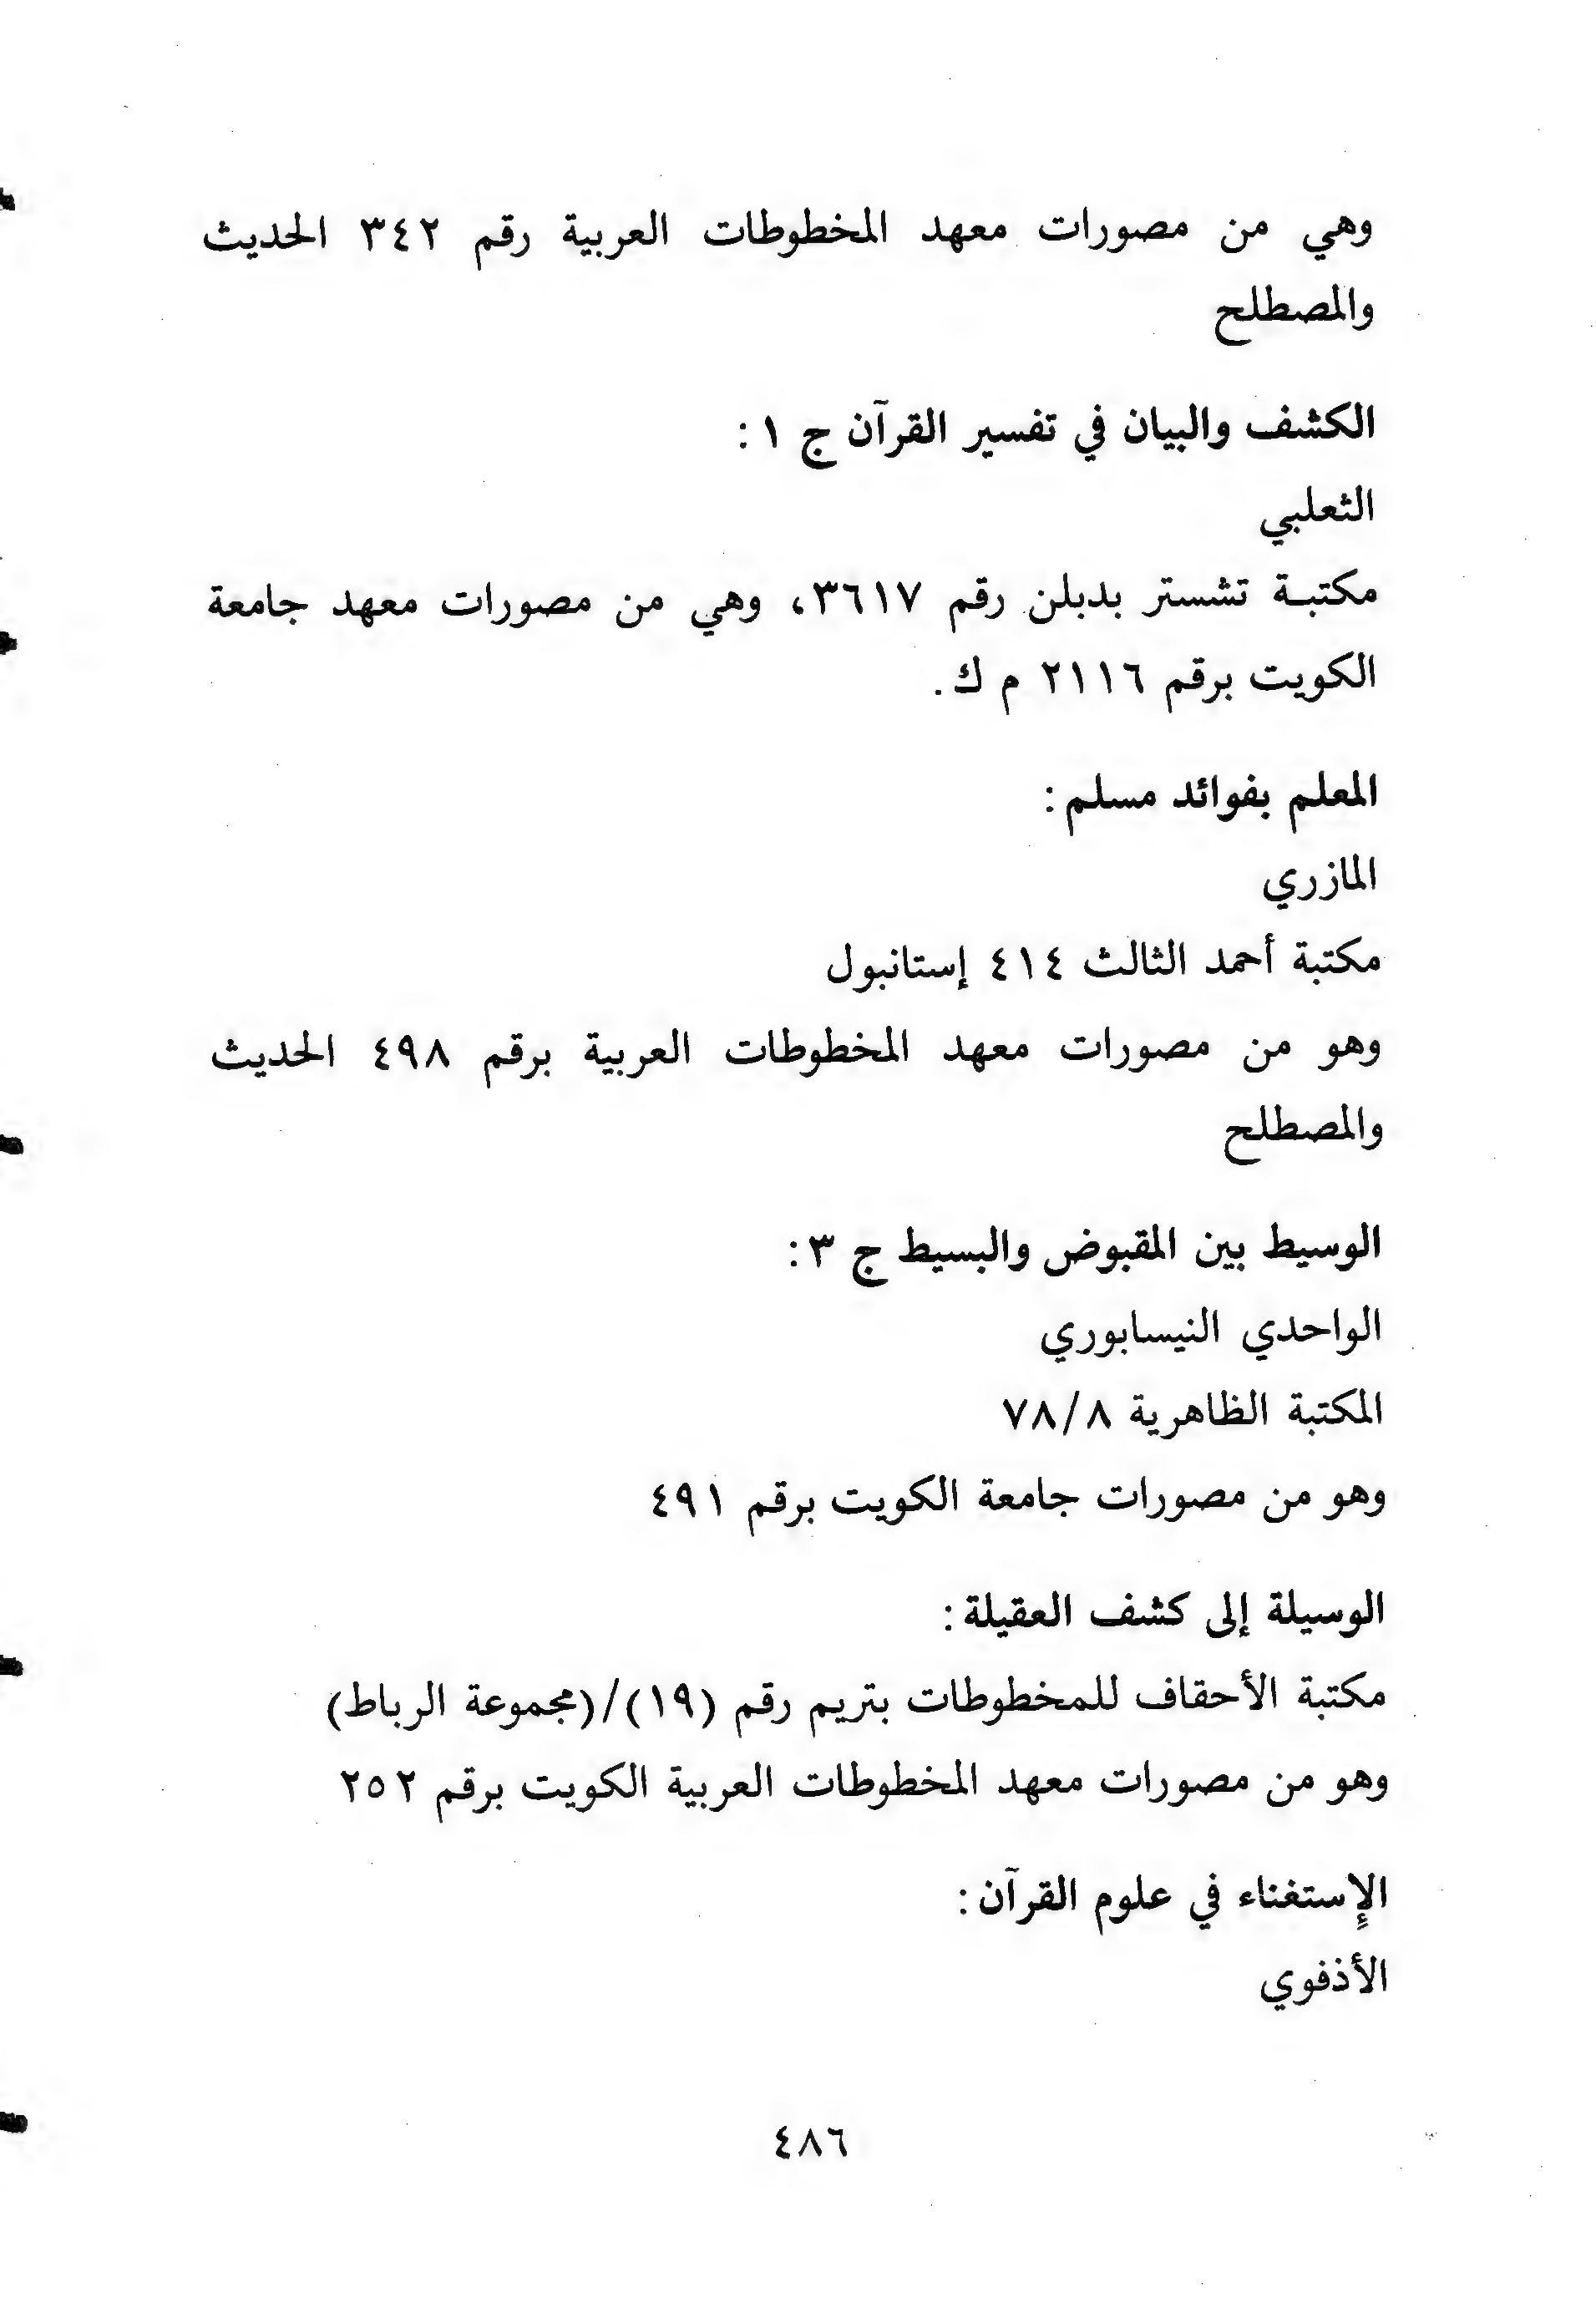 وهي من مصورات معهد المخطوطات العربية رقم ٣٤٢ الحديث
والمصطلح
الكشف والبيان في تفسير القرآن ج ١ :
الثعلبي
مكتبـة تشستر بدبلن رقم ٣٦١٧، وهي من مصورات معهد جامعة
الكويت برقم ٢١١٦ م ك .
المعلم بفوائد مسلم :
المازري
مكتبة أحمد الثالث ٤١٤ إستانبول
وهو من مصورات معهد المخطوطات العربية برقم ٤٩٨ الحديث
والمصطلح
الوسيط بين المقبوض والبسيط ج ٣ :
الواحدي النيسابوري
المكتبة الظاهرية ٧٨/٨
وهو من مصورات جامعة الكويت برقم ٤٩١
الوسيلة إلى كشف العقيلة :
مكتبة الأحقاف للمخطوطات بتريم رقم (١٩)/(مجموعة الرباط)
وهو من مصورات معهد المخطوطات العربية الكويت برقم ٢٥٢
الإستغناء في علوم القرآن :
الأذفوي
٤٨٦